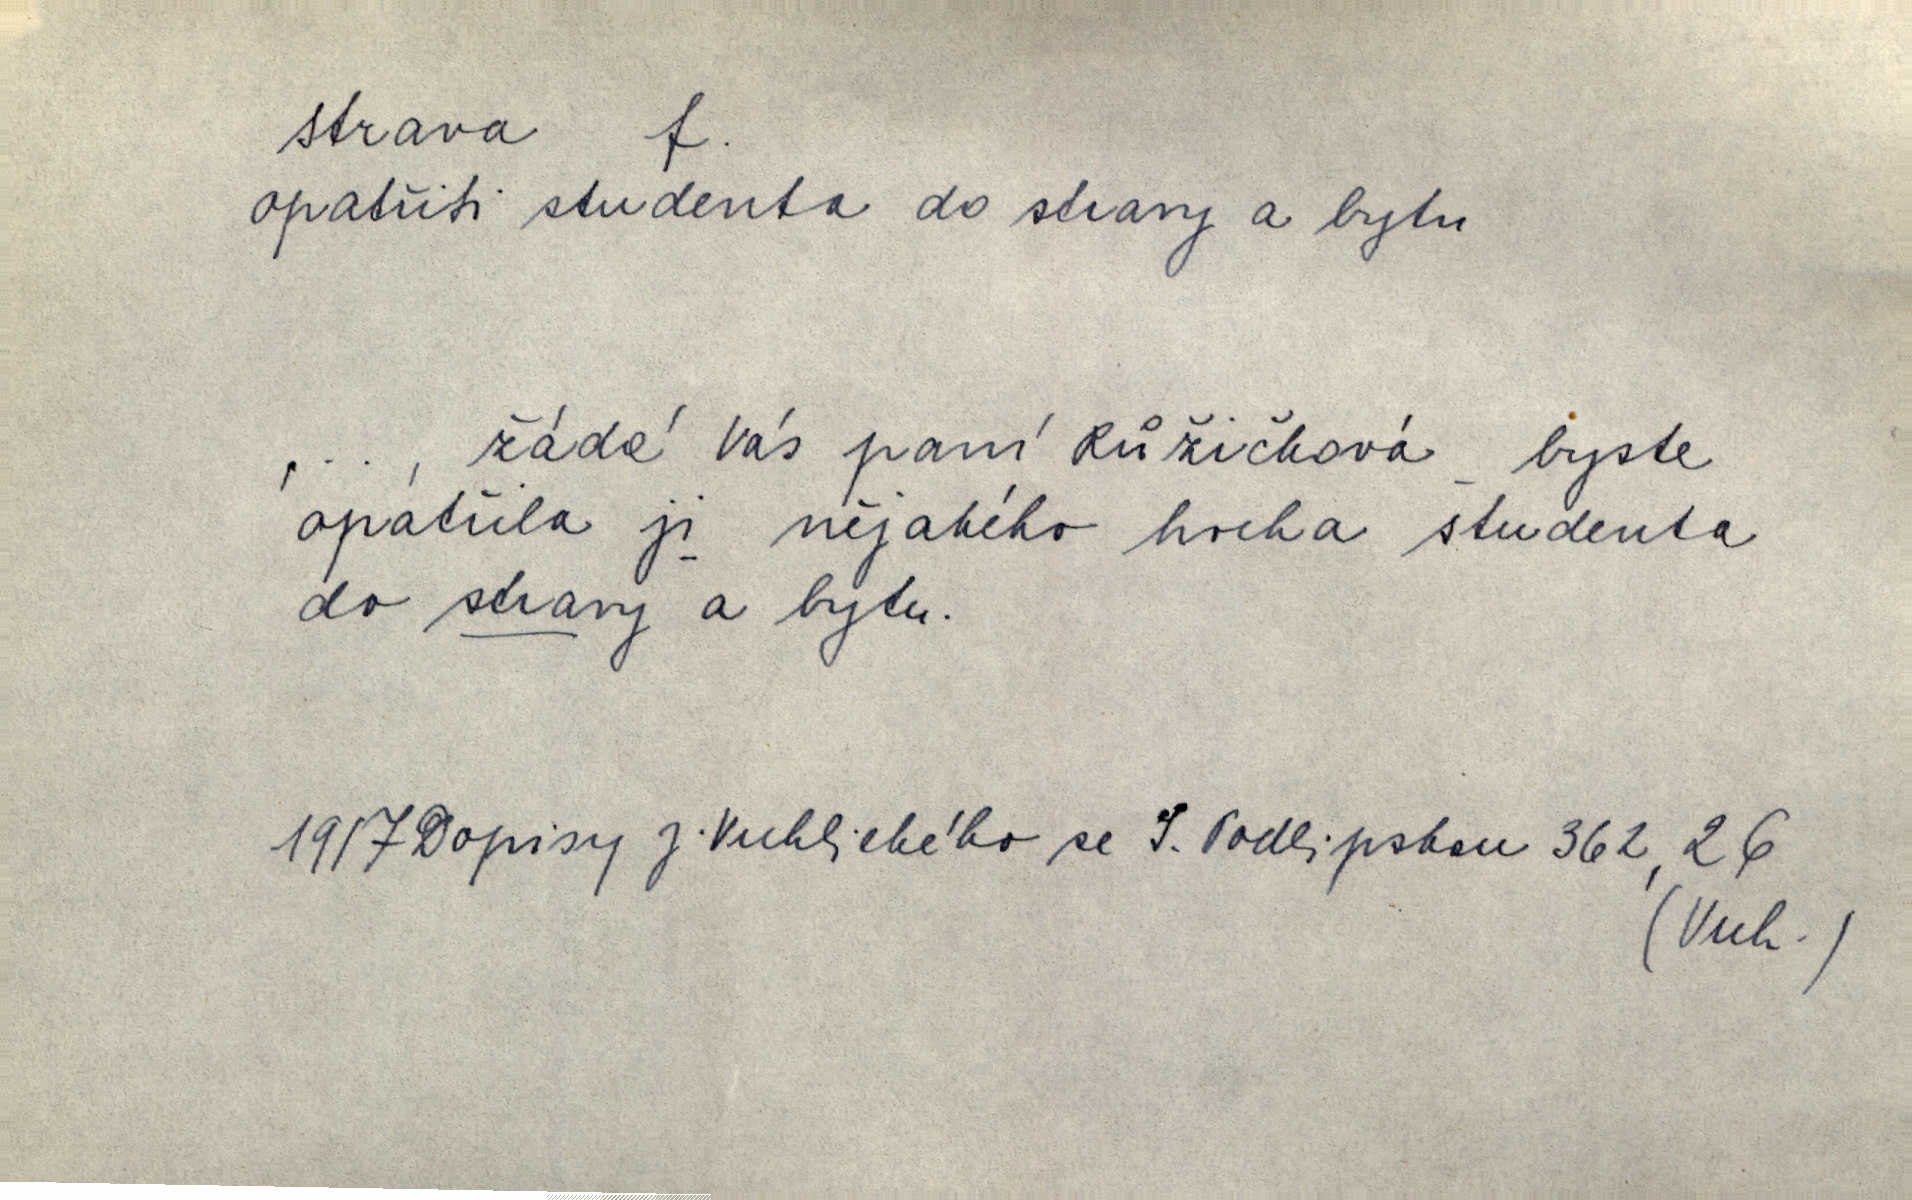 strava f.
opatřiti studenta do stravy a bytu
, . . . , žádá Vás paní Růžičková byste
opatřila ji nějakého hocha studenta
do stravy a bytu.
1917 Dopisy J. Vrchlického se S. Podlipskou 362, 26
(Vrch.)